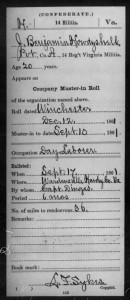 (CONFEDERATE.)
14 Militia. Va.
J. Benjamin
Pvt. Co. A, 14 Reg't Virginia Militia.
Age 20 years.
Appears on
Company Muster-in Roll
of the organization named above.
Roll dated Winchester
Dec. 12, 1861
Muster-in to date Sept. 10 1861
Occupation Day Laborer
Enlisted:
When Sept. 17, 1861.
Where Hardy Co. Va
By whom Capt.
Period 6 mos
No. of miles to rendezvous 36.
Remarks:
Book mark:
L. F. Sykes
Copyist.